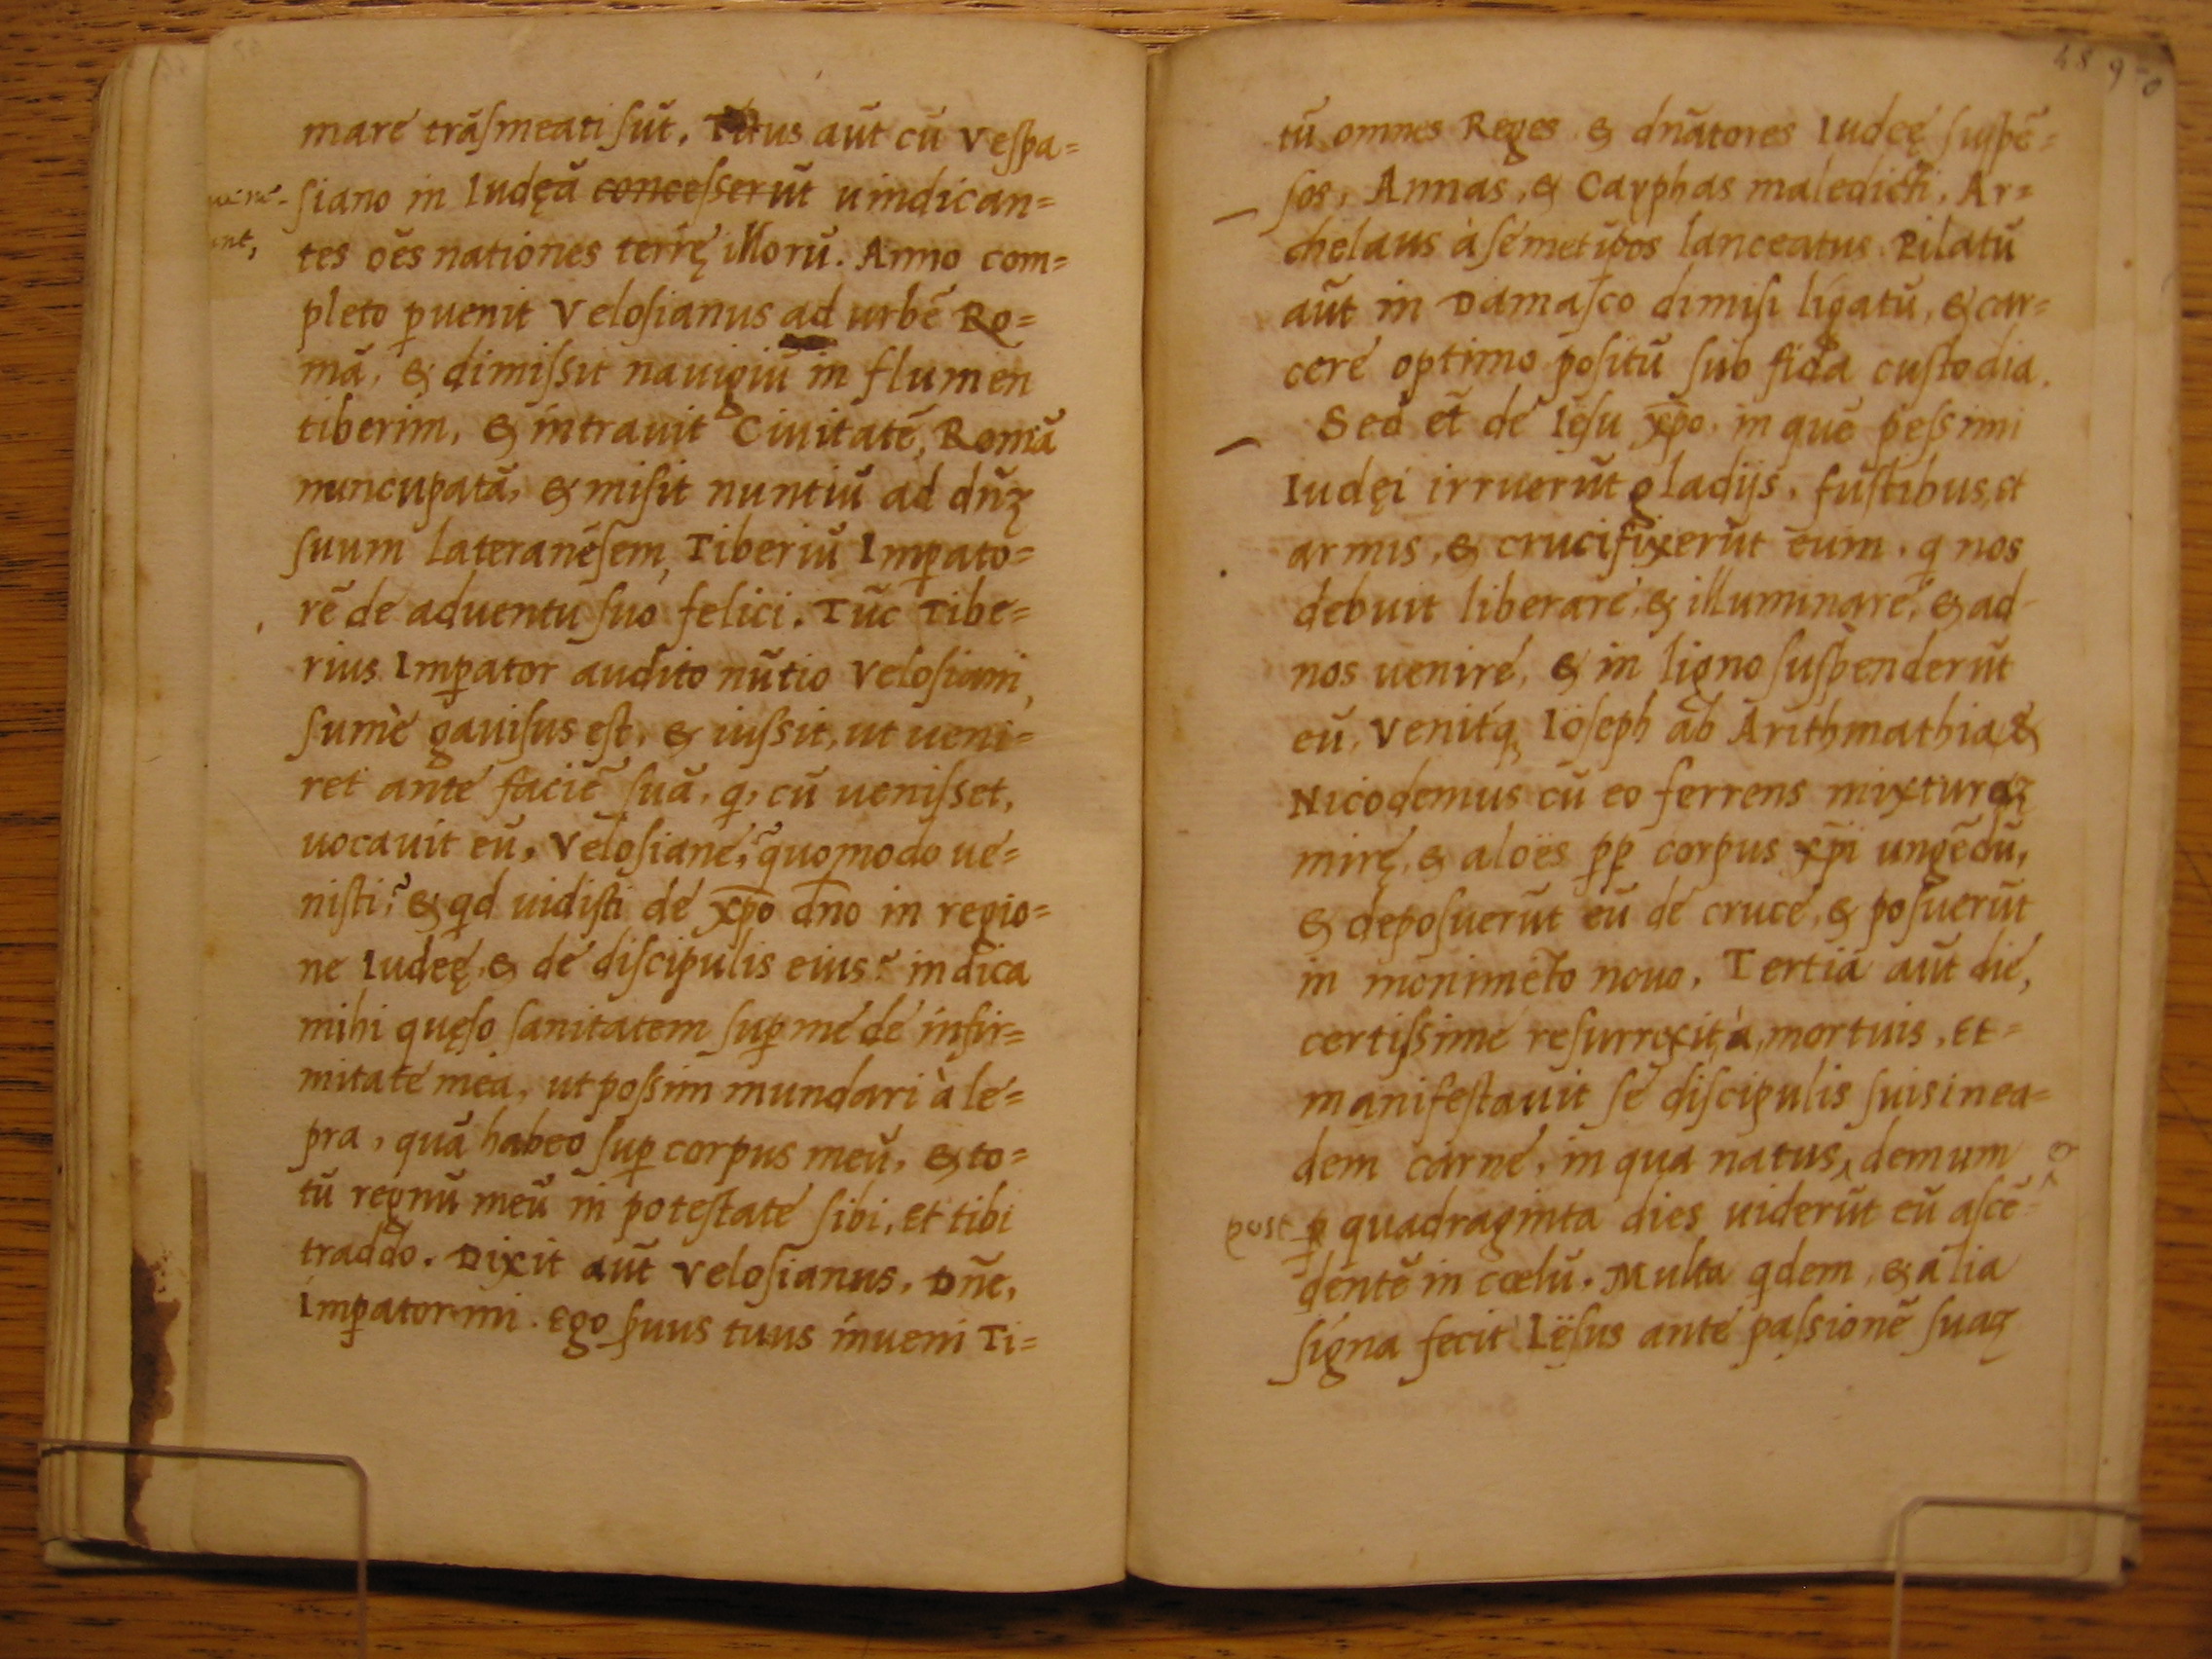 mare trãſmeati ſũt, Titus aũt cũ Veſpa=
ſiano in Iudęã conceſſerũt uindican=
tes oẽs nationes terrę illorũ. Anno com=
pleto ꝑuenit Veloſianus ad urbẽ Ro=
mã, & dimiſſit nauigiũ in flumen
tiberim, & intrauit Ciuitatẽ, Romã
nuncupatã, & miſit nuntiũ ad dñꝫ
ſuum lateranẽſem, Tiberiũ Imꝑato=
rẽ de aduentu ſuo felici. Tũc Tibe=
rius Imꝑator audito nũtio Veloſiani,
ſumè gauiſus eſt, & iuſſit, ut ueni=
ret ante faciẽ ſuã, q, cũ ueniſſet,
uocauit eũ, Veloſiane, quomodo ue=
niſti? & qd uidiſti de xp̃o dño in regio=
ne Iudeę, & de diſcipulis eius? indica
mihi quęſo ſanitatem ſuꝑ me de infir=
mitate mea, ut poſſim mundari à le=
pra, quã habeo ſuꝑ corpus meũ, & to=
tũ regnũ meũ in poteſtate ſibi, et tibi
traddo. Dixit aũt Veloſianus, Dñe,
Imꝑator mi. Ego ſuus tuus inueni Ti=
48
tũ omnes Reges & dñatores Iudeę ſuſpẽ=
ſos, Annas, & Cayphas maledicti, Ar=
chelaus à ſemetipos lanceatus. Pilatũ
aũt in Damaſco dimiſi ligatũ, & car=
cere optimo poſitũ ſub fida cuſtodia.
Sed et̃ de Ieſu xp̃o, in quẽ peſſimi
Iudęi irruerũt gladijs, fuſtibus, et
armis, & crucifixerũt eum, q nos
debuit liberare, & illuminare, & ad
nos uenire, & in ligno ſuſpenderũt
eũ, Venitq, Ioſeph ab Arithmathia, &
Nicodemus cũ eo ferrens mixturaꝫ
mirę, & aloës ꝓꝑ corpus xp̃i ungẽdũ,
& depoſuerũt eũ de cruce, & poſuerũt
in monimẽto nouo, Tertia aũt die,
certiſſime reſurrexit, à, mortuis, et=
manifeſtauit ſe diſcipulis ſuis in ea=
dem carne, in qua natus, demum
post ꝑ quadraginta dies uiderũt eũ aſcẽ=
dentẽ in cœlũ. Multa qdem, & alia
ſigna fecit Iëſus ante paſsionẽ ſuaꝫ